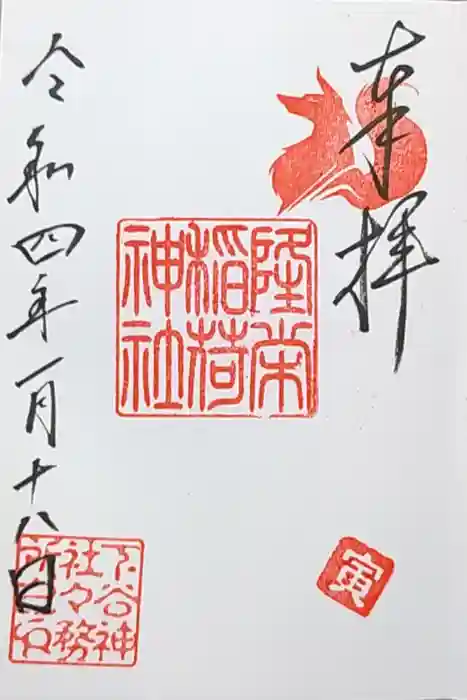 奉拝
隆栄
稲荷
神社
令和四年一月十八日
下谷神
社々務
所之印
寅